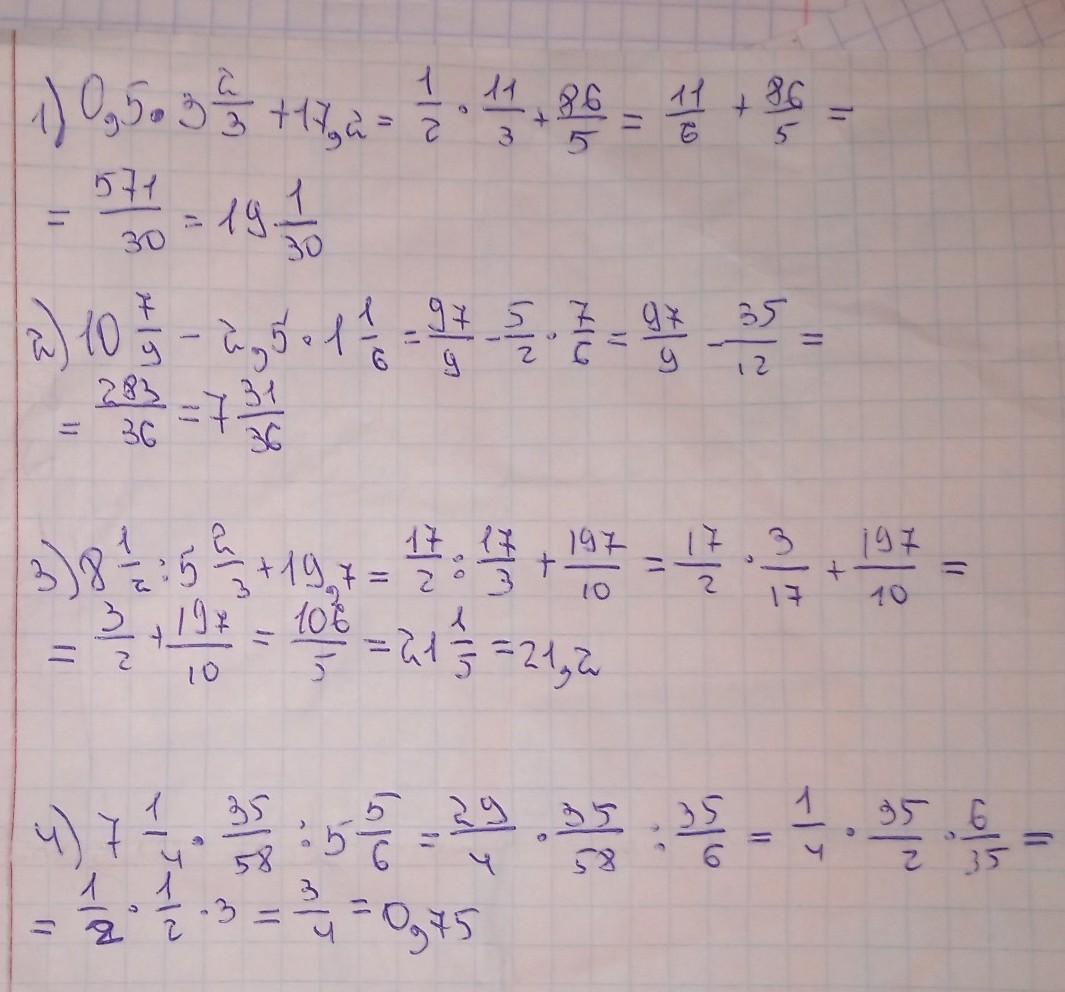 1) 0,5 · 3 2/3 + 17,2 = 1/2 · 11/3 + 86/5 = 11/6 + 86/5 =
= 571/30 = 19 1/30
2) 10 7/9 - 2,5 · 1 1/6 = 97/9 - 5/2 · 7/6 = 97/9 - 35/12 =
= 283/36 = 7 31/36
3) 8 1/2 : 5 2/3 + 19,7 = 17/2 : 17/3 + 197/10 = 17/2 · 3/17 + 197/10 =
= 3/2 + 197/10 = 106/5 = 21 1/5 = 21,2
4) 7 1/4 · 35/58 : 5 5/6 = 29/4 · 35/58 : 35/6 = 1/4 · 35/2 · 6/35 =
= 1/2 · 1/2 · 3 = 3/4 = 0,75